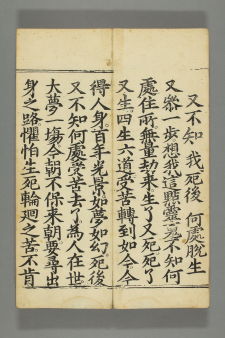 又不知我死後何處脫生
又叅一步想我這點靈不知何
處住所無量劫来生了又死死了
又生四生六道受苦轉到如今今
得人身百年光景如夢如幻死後
又不知何處受苦去了為人在世
大夢一塲今朝不保来朝要尋出
身之路懼怕生死輪廻之苦不肯